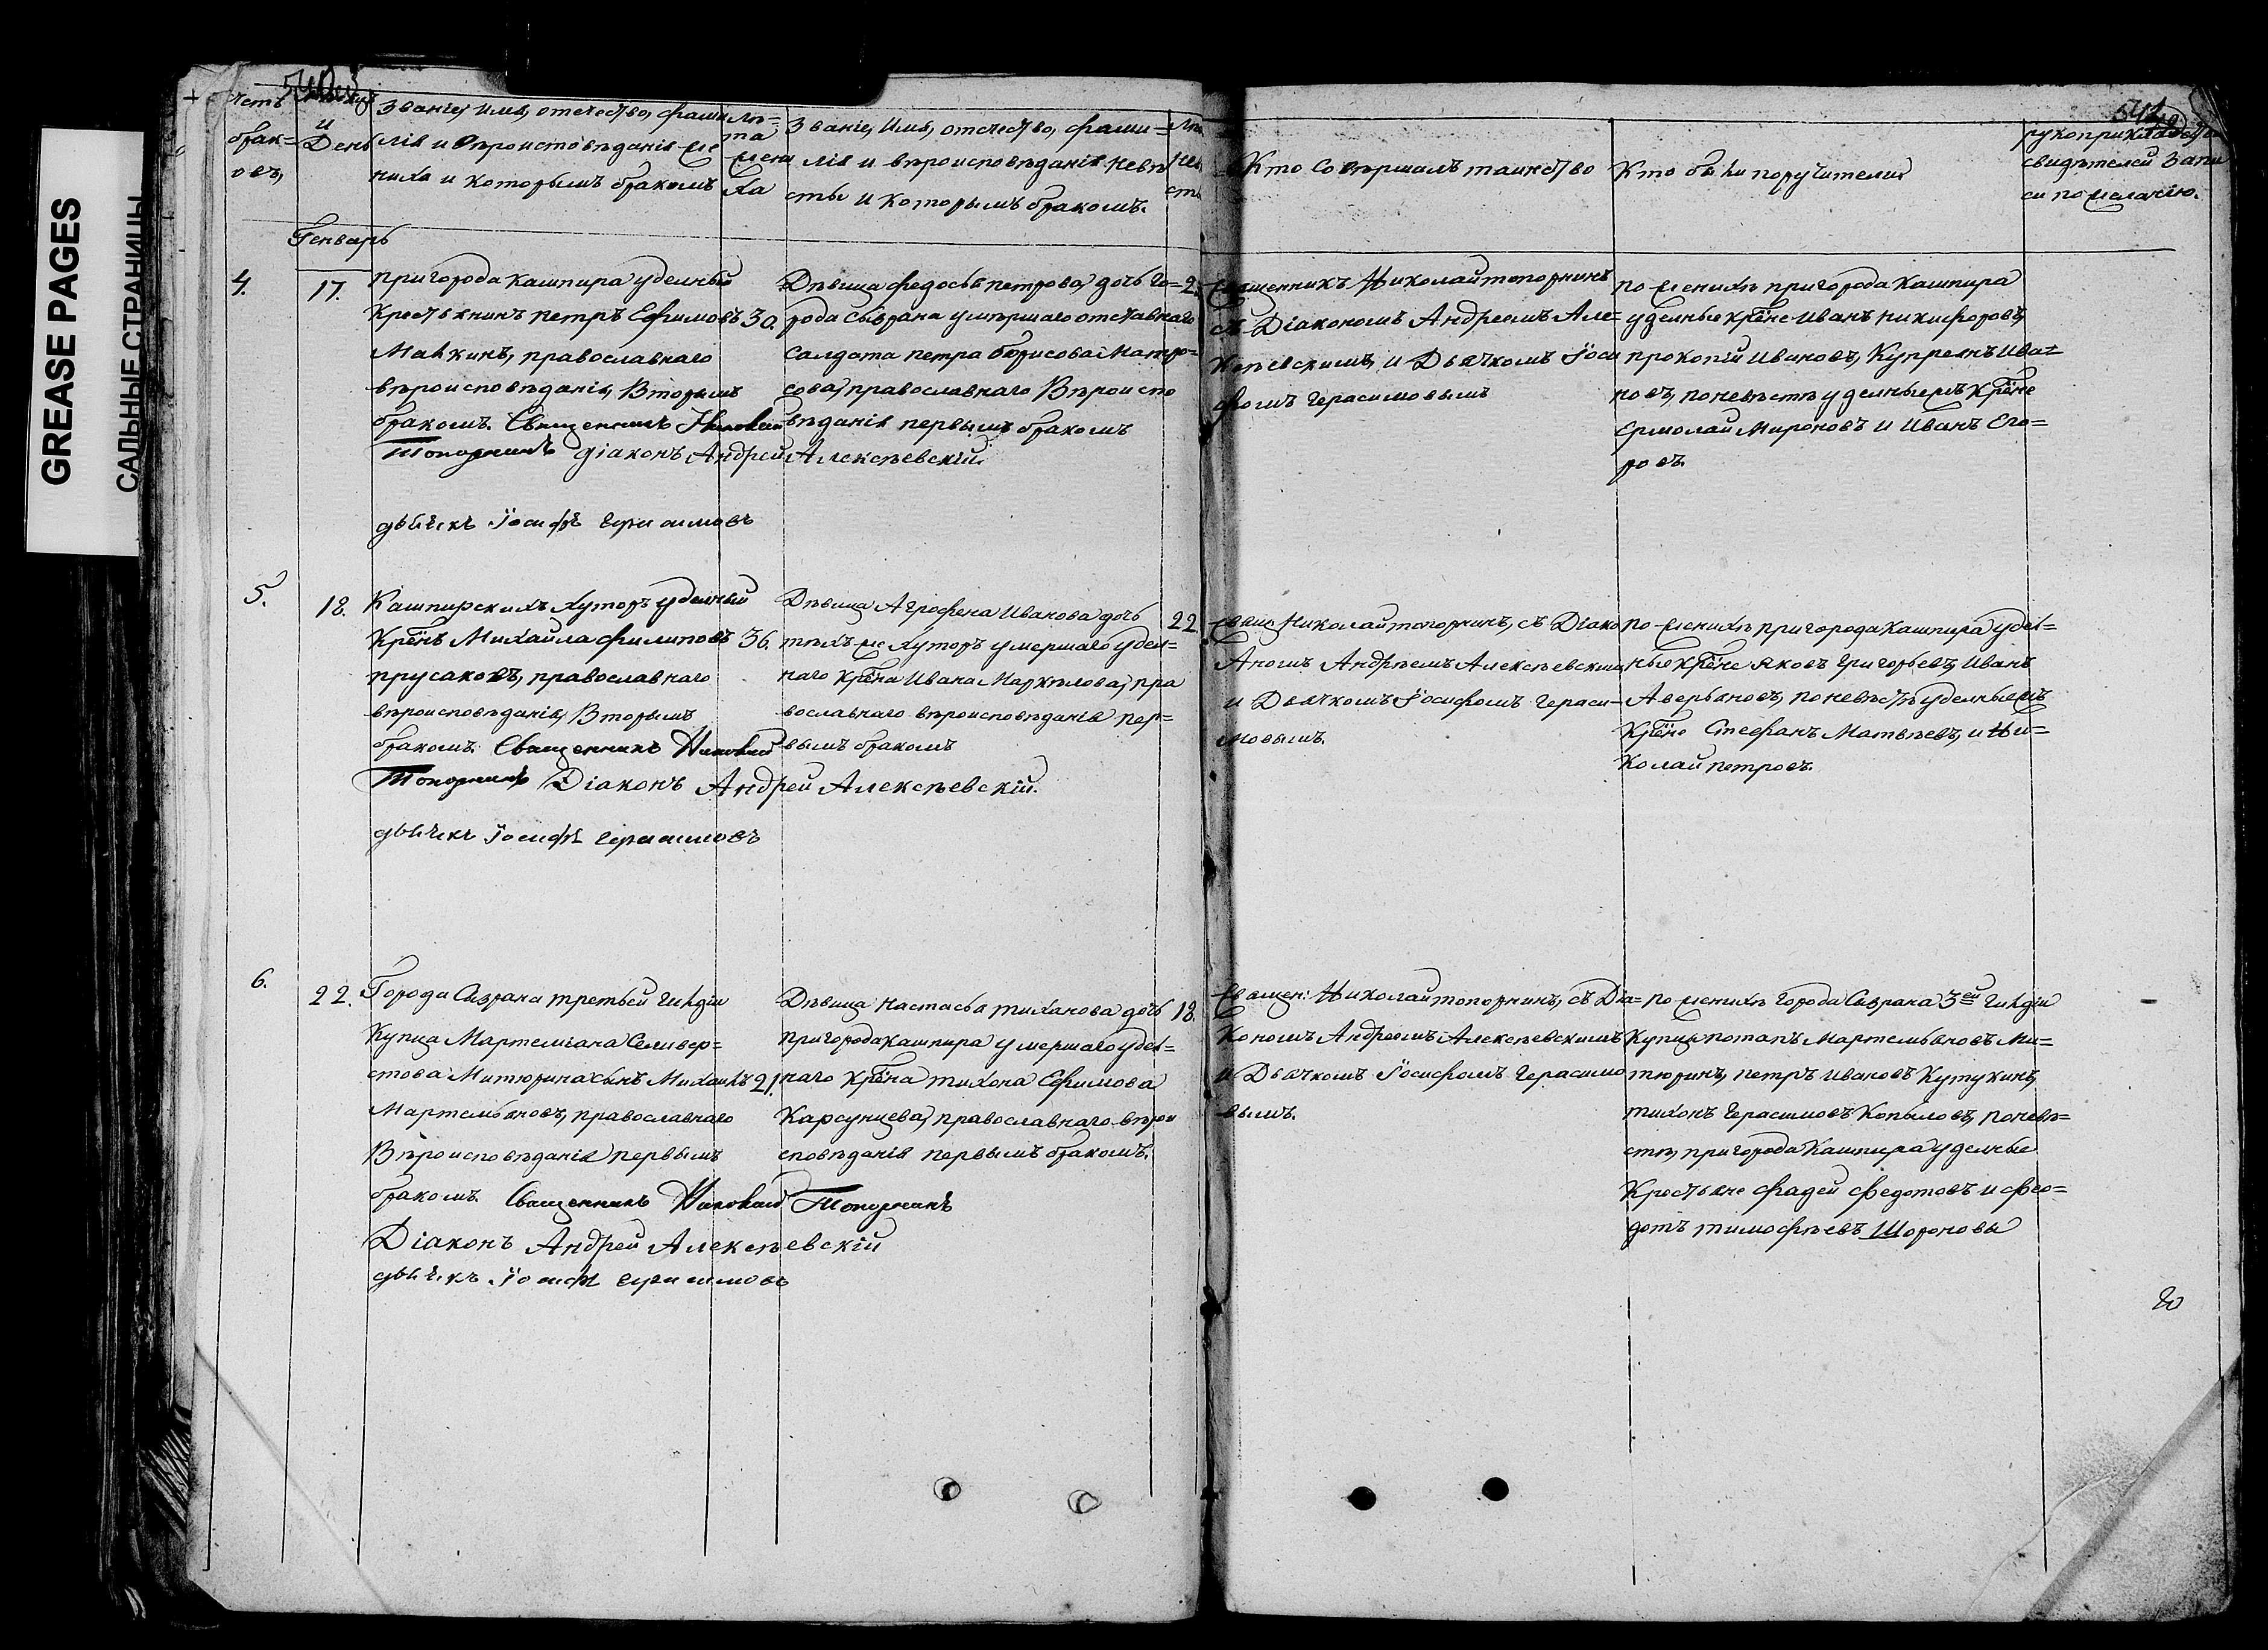 GREASE PAGES
САЛЬНЫЕ СТРАНИЦЫ
Счетъ
брак=
овъ,
и
День
Званіе, Имя, отечество, фами
лія и Вѣроисповѣданія же
ниха и которымъ бракомъ
Лѣ=
та
жени
ха
Званіе, Имя, отечество, фами=
лія и вѣроисповѣданія невѣ
сты и которымъ бракомъ.
Кто совѣршалъ таинство
Кто были поручители
рукоприкладство
свидѣтелей запи
си по желанію.
Генварь
4.
17.
пригорода Кашпира уделный
Крестьянинъ петръ Ефимовъ
Малкинъ, православнаго
вѣроисповѣданія, Вторымъ
бракомъ. Священникъ Николай
Топорнинъ діаконъ Андрей Алексѣевскій.
дьячекъ Іосифъ Герасимовъ
30.
Дѣвица федосья петрова, дочь го=
рода Сызрана умѣршаго отставнаго
Салдата петра борисова Матро=
сова, православнаго Вѣроиспо
вѣданія первымъ бракомъ
2
Священникъ Николай топорнинъ
съ Діакономъ Андреемъ Але=
ксѣевскимъ, и Дьячкомъ Іоси
фомъ Герасимовымъ
по женихѣ пригорода Кашпира
уделные кр͠не Иванъ никифоровъ,
прокопій Ивановъ, Купреянъ Ива=
новъ, по невѣстѣ уделныежъ Кр͠не
Ермолай Мироновъ и Иванъ Его=
ровъ.
5.
18.
Кашпирскихъ Хуторъ уделный
Кр͠нъ Михайла филиповъ
прусаковъ, православнаго
вѣроисповѣданія, Вторымъ
бракомъ. Священникъ Николай
Топорнинъ Діаконъ Андрей Алексѣевскій.
дьячекъ Іосифъ Герасимовъ
36.
Дѣвица Агрофена Иванова дочь
тѣхъ же хуторъ умершаго удел=
наго кр͠на Ивана Маркѣлова, пра
вославнаго вѣроисповѣданія пер=
вымъ бракомъ
22
Свящ: Николай топорнинъ, съ Діако
номъ Андрѣемъ Алексѣевским
и Дьячкомъ Іосифомъ Гераси=
мовымъ.
по женихѣ пригорода Кашпира удел=
ные кр͠не яковъ григорьевъ, Иванъ
Аверьяновъ, по невѣстѣ уделныежъ
Кр͠не Стефанъ Матвѣевъ, и Ни=
колай петровъ.
6.
22.
Города Сызрана третьей Гилдіи
Купца Мартеміана Селивер=
стова Митюрина сынъ Михаилъ
Мартемьяновъ, православнаго
Вѣроисповѣданія первымъ
бракомъ. Священникъ Николай Топорнинъ
Діаконъ Андрей Алексѣевскій
дьячекъ Іосифъ Герасимовъ
21.
Дѣвица Настасья тиханова дочь
пригорода кашпира умершаго удел=
наго кр͠на тихона Ефимова
Карсунцева, православнаго вѣрои
сповѣданія первымъ бракомъ.
18.
Священ: Николай топорнинъ, съ Діа=
кономъ Андреемъ Алексѣевскимъ
и Дьячкомъ Іосифомъ Герасимо
вымъ.
по женихѣ города Сызрана 3ей Гилдіи
Купцы потапъ Мартемьяновъ Ми=
тюринъ, петръ Ивановъ Кутукинъ,
тихонъ Герасимовъ Копыловъ, по невѣ=
стѣ, пригорода Кашпира уделные
Крестьяне фадей федотовъ и фео=
дотъ тимофѣевъ Шороновы